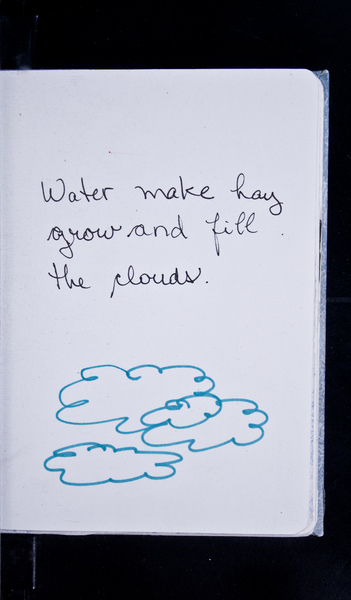 Water make hay
grow and fill
the clouds.